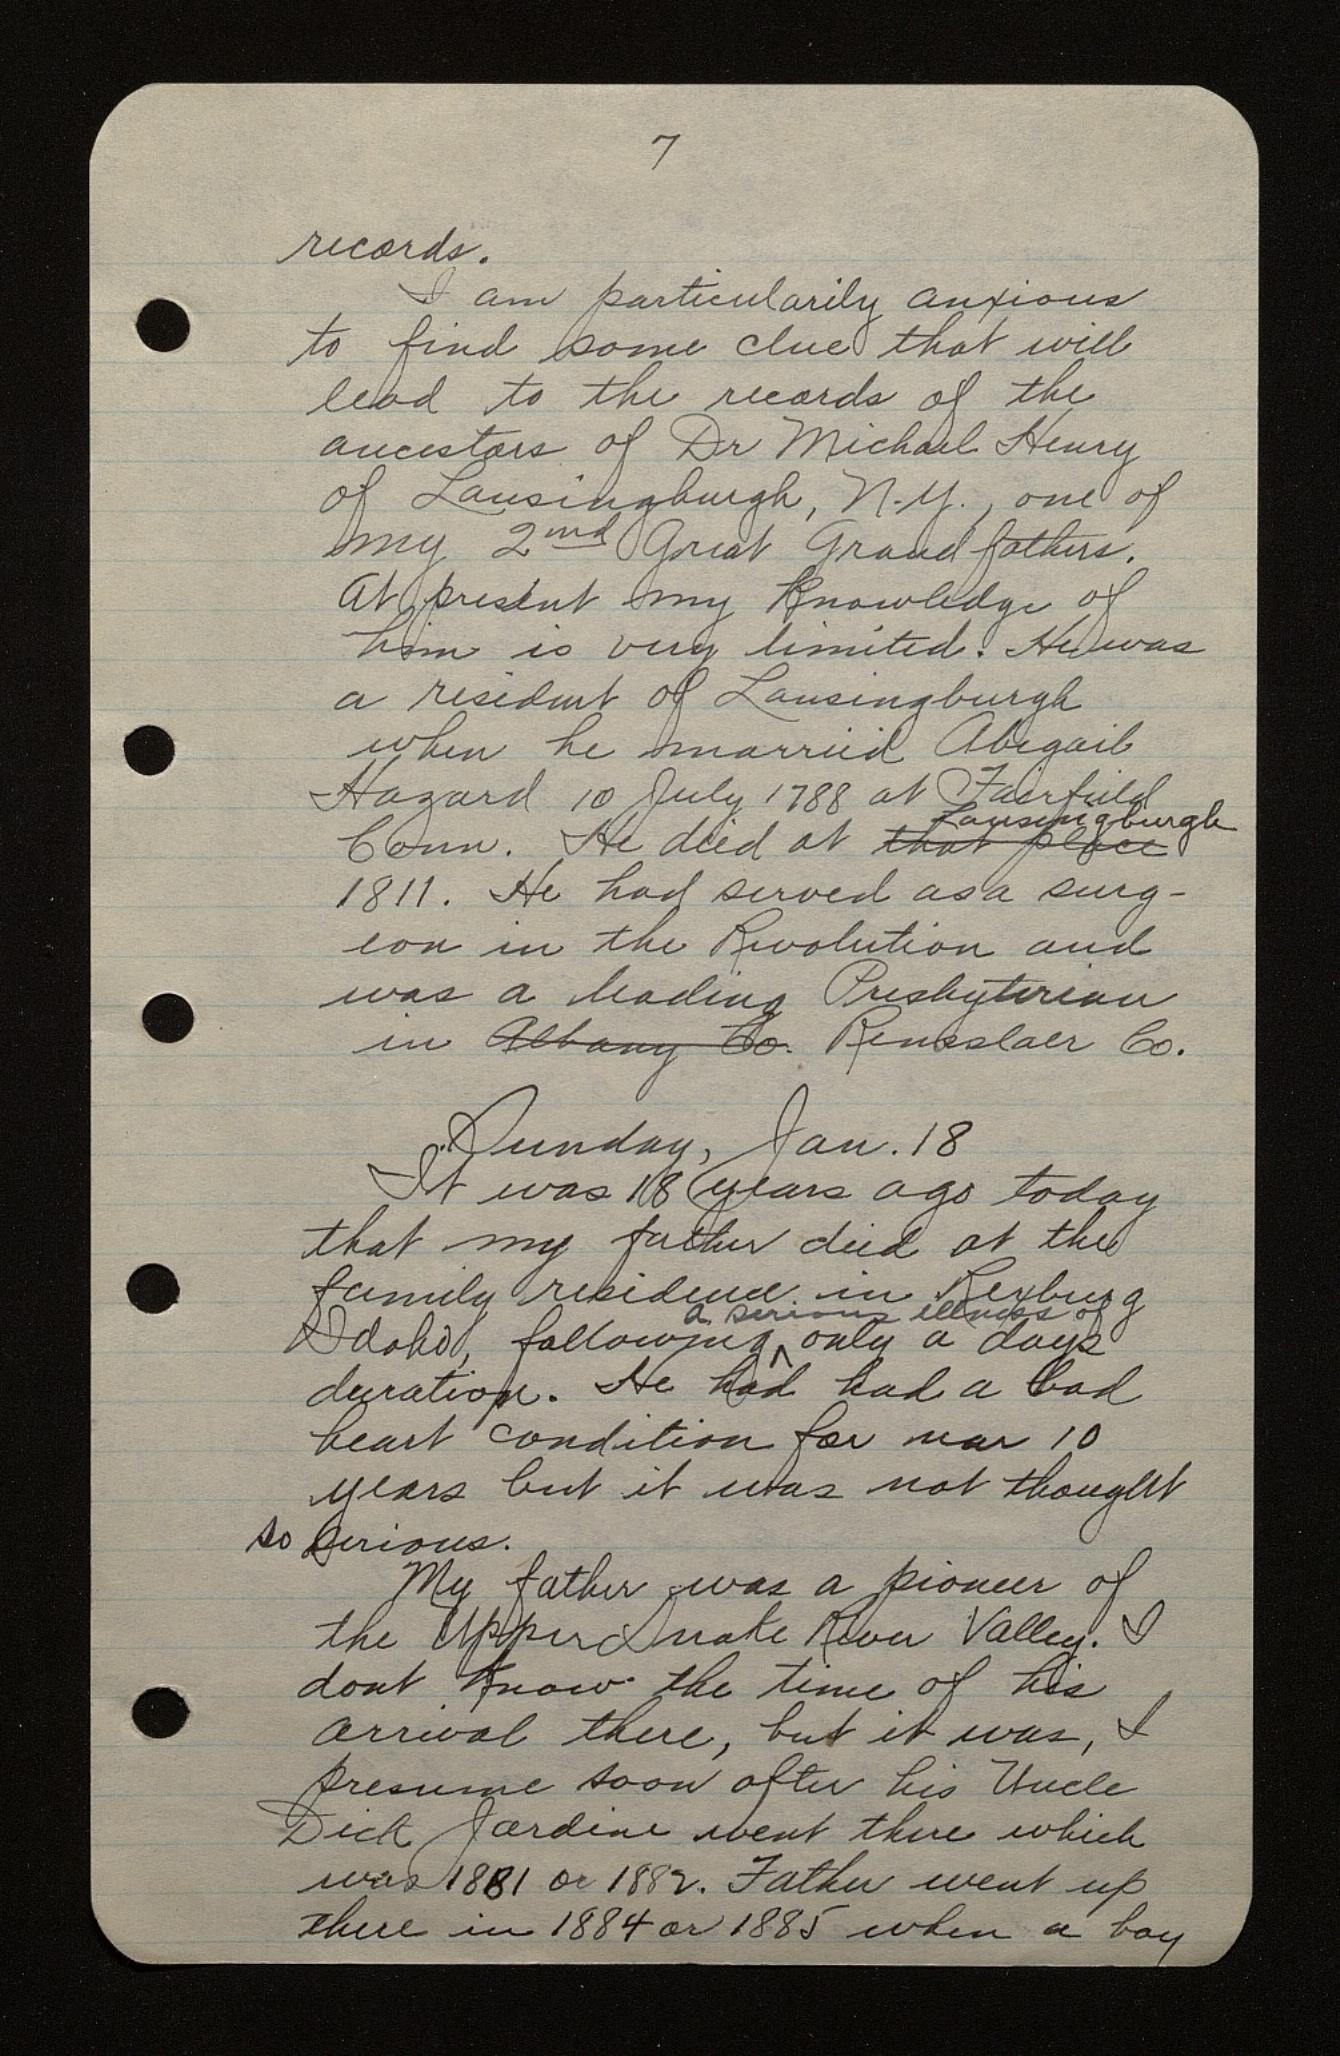 7
records.
I am particularily anxious
to find some clue that will
lead to the records of the
ancestors of Dr Michael Henry
of Lansingburgh, N.Y., one of
my 2nd Great Grandfathers.
At present my knowledge of
him is very limited. He was
a resident of Lansingburgh
when he married Abigail
Hazard 10 July 1788 at Fairfield
Lansingburgh
Conn. He died at that place
1811. He had served as a surg-
eon in the Revolution and
was a leading Presbyterian
in Albany Co. Rensslaer Co.
Sunday, Jan. 18
It was 18 years ago today
that my father died at the
family residence in Rexburg
a serious illness of
Idaho, following ^ only a days
duration. He had had a bad
heart condition for near 10
years but it was not thought
so serious.
My father was a pioneer of
the Upper Snake River Valley. I
dont know the time of his
arrival there, but it was, I
presume soon after his Uncle
Dick Jardine went there which
was 1881 or 1882. Father went up
there in 1884 or 1885 when a boy